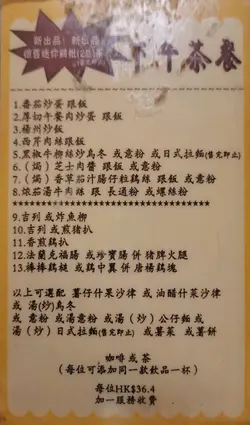 新出品！新出品！
懷舊迷你腸粉(2條)
(售完即止)
下午茶餐
1.番茄炒蛋 跟飯
2.厚切午餐肉炒蛋 跟飯
3.楊州炒飯
4.西芹肉絲跟飯
5.黑椒牛柳絲炒烏冬 或意粉 或日式拉麵(售完即止)
6.（焗）芝士肉醬 跟飯 或意粉
7.（焗）香草茄汁腸仔粒鷄絲 跟飯 或意粉
8.濃茄湯牛肉絲 跟 長通粉 或螺絲粉
9.吉列 或炸魚柳
10.吉列 或煎豬扒
11.香煎鷄扒
12.法蘭克福腸 或珍寶腸 併 豬牌火腿
13.棒棒鷄槌 或鷄中翼 併 唐楊鷄塊
以上可選配 薯仔什果沙律 或 油醋什菜沙律
或 湯(炒)烏冬
或 意粉 或湯意粉 或湯（炒）公仔麵 或
湯（炒）日式拉麵(售完即止) 或薯菜 或薯餅
咖啡 或 茶
（每位可添加同一款飲品一杯）
每位HK$36.4
加一服務收費